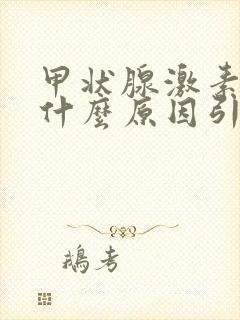 甲状腺激素
什麼原因引
鵝考